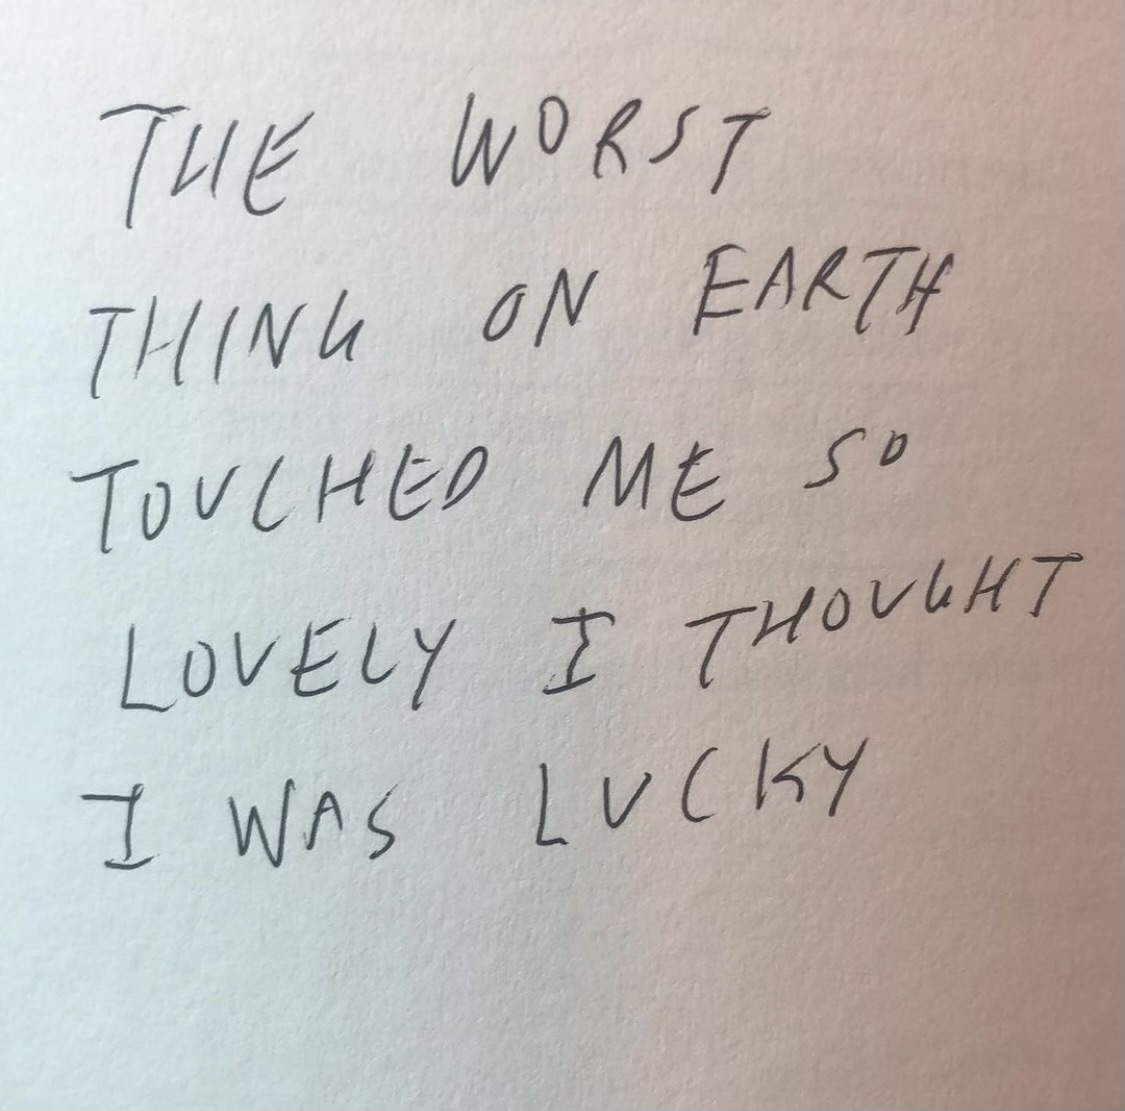 THE WORST
THING ON EARTH
TOUCHED ME SO
LOVELY I THOUGHT
I WAS LUCKY